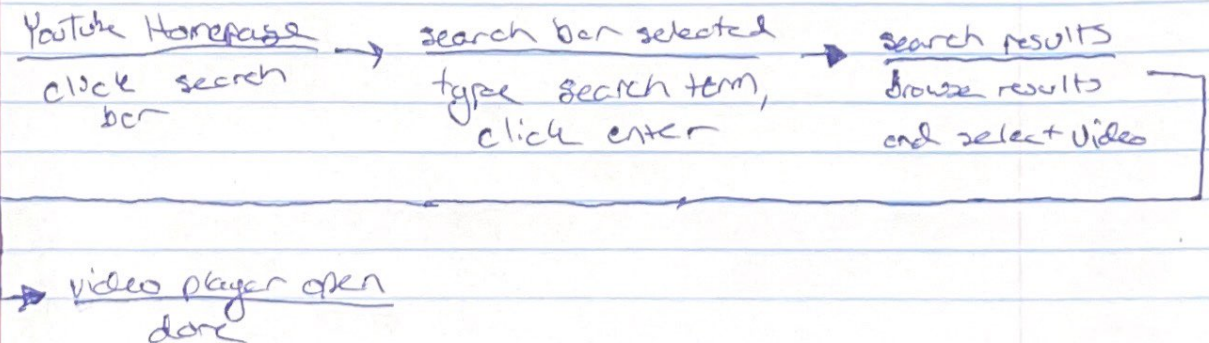 YouTube Homepage
click search
bar
search bar selected
type search term,
click enter
search results
browse results
and select video
video player open
done